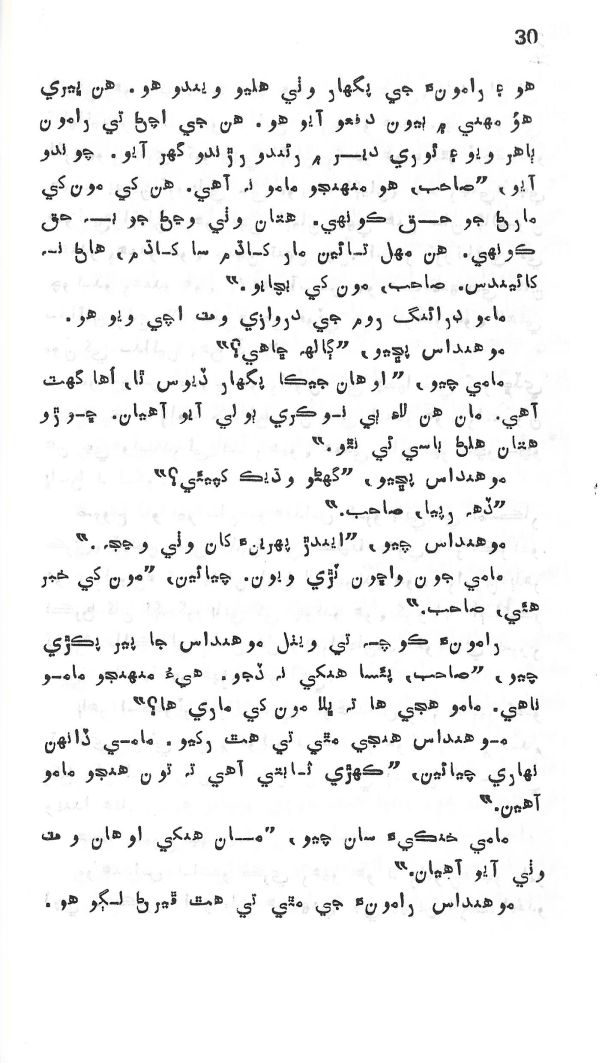 30
هو ۽ رامونءَ جي پگهار وٺي هليو ويندو هو. هن ڀيري
هوُ مهني ۾ ٻيون دفعو آيو هو. هن جي اچڻ تي رامون
ٻاهر ويو ۽ ٿوري دير ۾ رئندو رڙندو گهر آيو. چوندو
آيو، ”صاحب، هو منهنجو مامو نہ آهي. هن کي مون کي
مارڻ جو حق ڪونهي. هتان وٺي وڃڻ جو بہ حق
ڪونهي. هن مهل تائين مار کاڌم سا کاڌم، هاڻ نہ
کائيندس. صاحب، مون کي بچايو.“
مامو ڊرائنگ روم جي دروازي وٽ اچي ويو هو.
موهنداس پڇيو، ”ڳالهہ ڇاهي؟“
مامي چيو، ”اوهان جيڪا پگهار ڏيوس ٿا، اُها گهٽ
آهي. مان هن لاءِ ٻي نوڪري ٻولي آيو آهيان. ڇورو
هتان هلڻ باسي ئي نٿو.“
موهنداس پڇيو، ”گهڻو وڌيڪ کپيئي؟“
”ڏهہ رپيا، صاحب.“
موهنداس چيو، ”ايندڙ پهرينءَ کان وٺي وڃجہ.“
مامي جون واڇون ٽڙي ويون. چيائين، ”مون کي خبر
هئي، صاحب.“
رامونءَ ڪوچہ تي ويٺل موهنداس جا پير پڪڙي
چيو، ”صاحب، پئسا هنکي نہ ڏجو، هيءُ منهنجو مامو
ناهي. مامو هجي ها تہ ڀلا مون کي ماري ها؟“
موهنداس هنجي مٿي تي هٿ رکيو. مامي ڏانهن
نهاري چيائين، ”ڪهڙي ثابتي آهي تہ تون هنجو مامو
آهين.“
مامي خنڪيءَ سان چيو، ”مان هنکي اوهان وٽ
وٺي آيو آهيان.“
موهنداس رامونءَ جي مٿي تي هٿ ڦيرڻ لڳو هو.